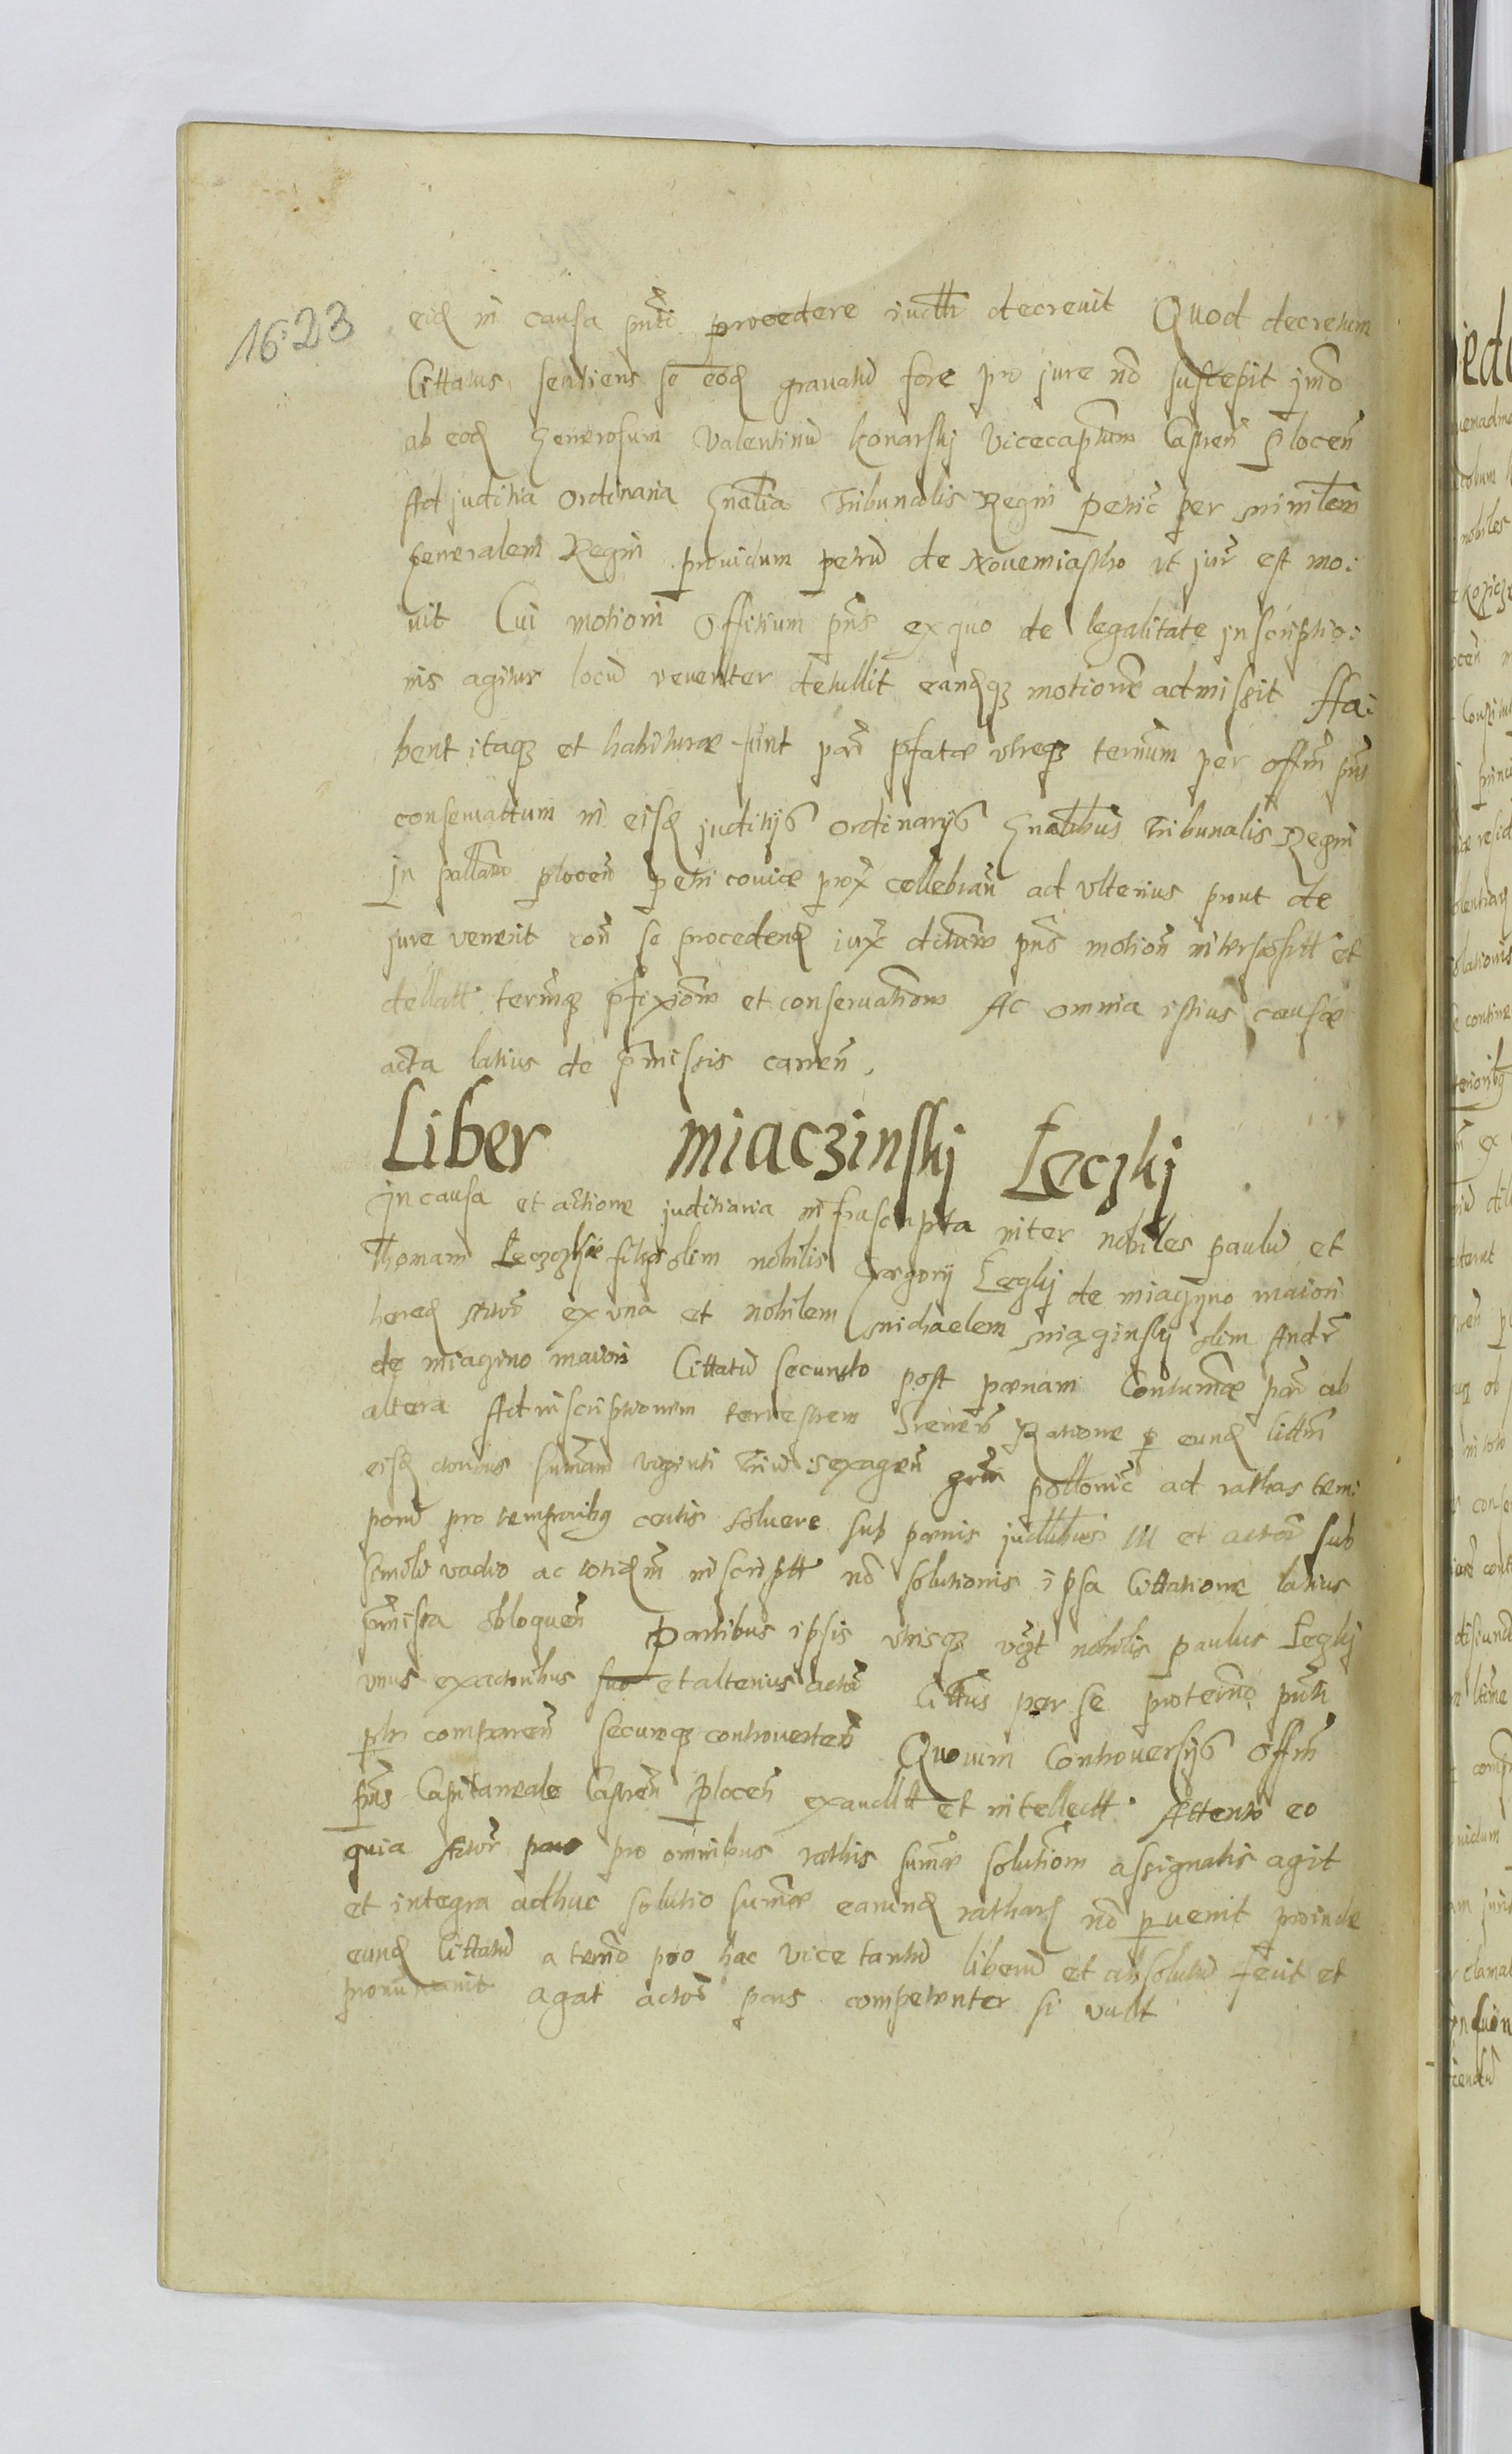 1623
eid in causa pnti procedere iudtr decrevit Quod decretum
Cittatus sentiens se eod gravatu fore pro jure no suscepit jmo
ab eod Generosum Valentinu Konarskj Vicecaptum Castren Plocen
Ad juditia Ordinaria Gnalia Tribunalis Regni petric per minitlem
Generalem Regni providum petru de Novemiastho vt jur est mo:
vit Cui motioni Offitium pns ex quo de legalitate jnscriptio:
nis agitur locu reventer detullit eandqz motione admissit Ha:
bent itaqz et habiturae sunt par pfatae vtreqz termum per offm pns
conservattum in eisd juditijs ordinarijs Gnalibus Tribunalis Regni
jn pallatu plocen petricoviae prox cellebran ad vlterius prout de
jure venerit con se procedend iux dictam pns motion interposit et
dellatt termqz pfixiom et conservationem Ac omnia istius causae
acta latius de pmissis canen.
Liber miaczinskj Łeczkj
jn causa et actione juditiaria infrascripta inter nobiles paulu et
Thomam Łeczczkie filios olim nobilis Gregorij Łęczkj de miączyno maiori
hered actor ex vna et nobilem michaelem miączinskj olim Andr
de miączino maiori Cittatu secundo post paenam Contumae par ab
altera Ad inscriptionem terrestrem Srenen Ratione p eund citttm
eisd actoribus sumam viginti Triu sexagen grm pollonic ad rathas tem:
poru pro temporibz certis solvere sub paenis judtlibus III et actor sub
simili vadio ac totidem inscriptt no solutionis ipsa Cittatione latius
pmissa obloquen Partibus ipsis vtrisqz vgt nobilis paulus Łęczkj
vnus ex actoribus suo et alterius actor Cittus per se pro termo pnti
pltr comparen secumqz controverten Quorum Controversijs offm
pns Capitaneale Castren Plocen exaudtt et intellectt Attento eo
quia Actor pars pro omnibus rathis sumae solutiom assignatis agit
et integra adhuc solutio sumae earund rathard no pvenit proinde
eund Cittatu a termo pro hac vice tantu liberu et absolutu fecit et
pronuntiavit agat actor pars competenter si vult